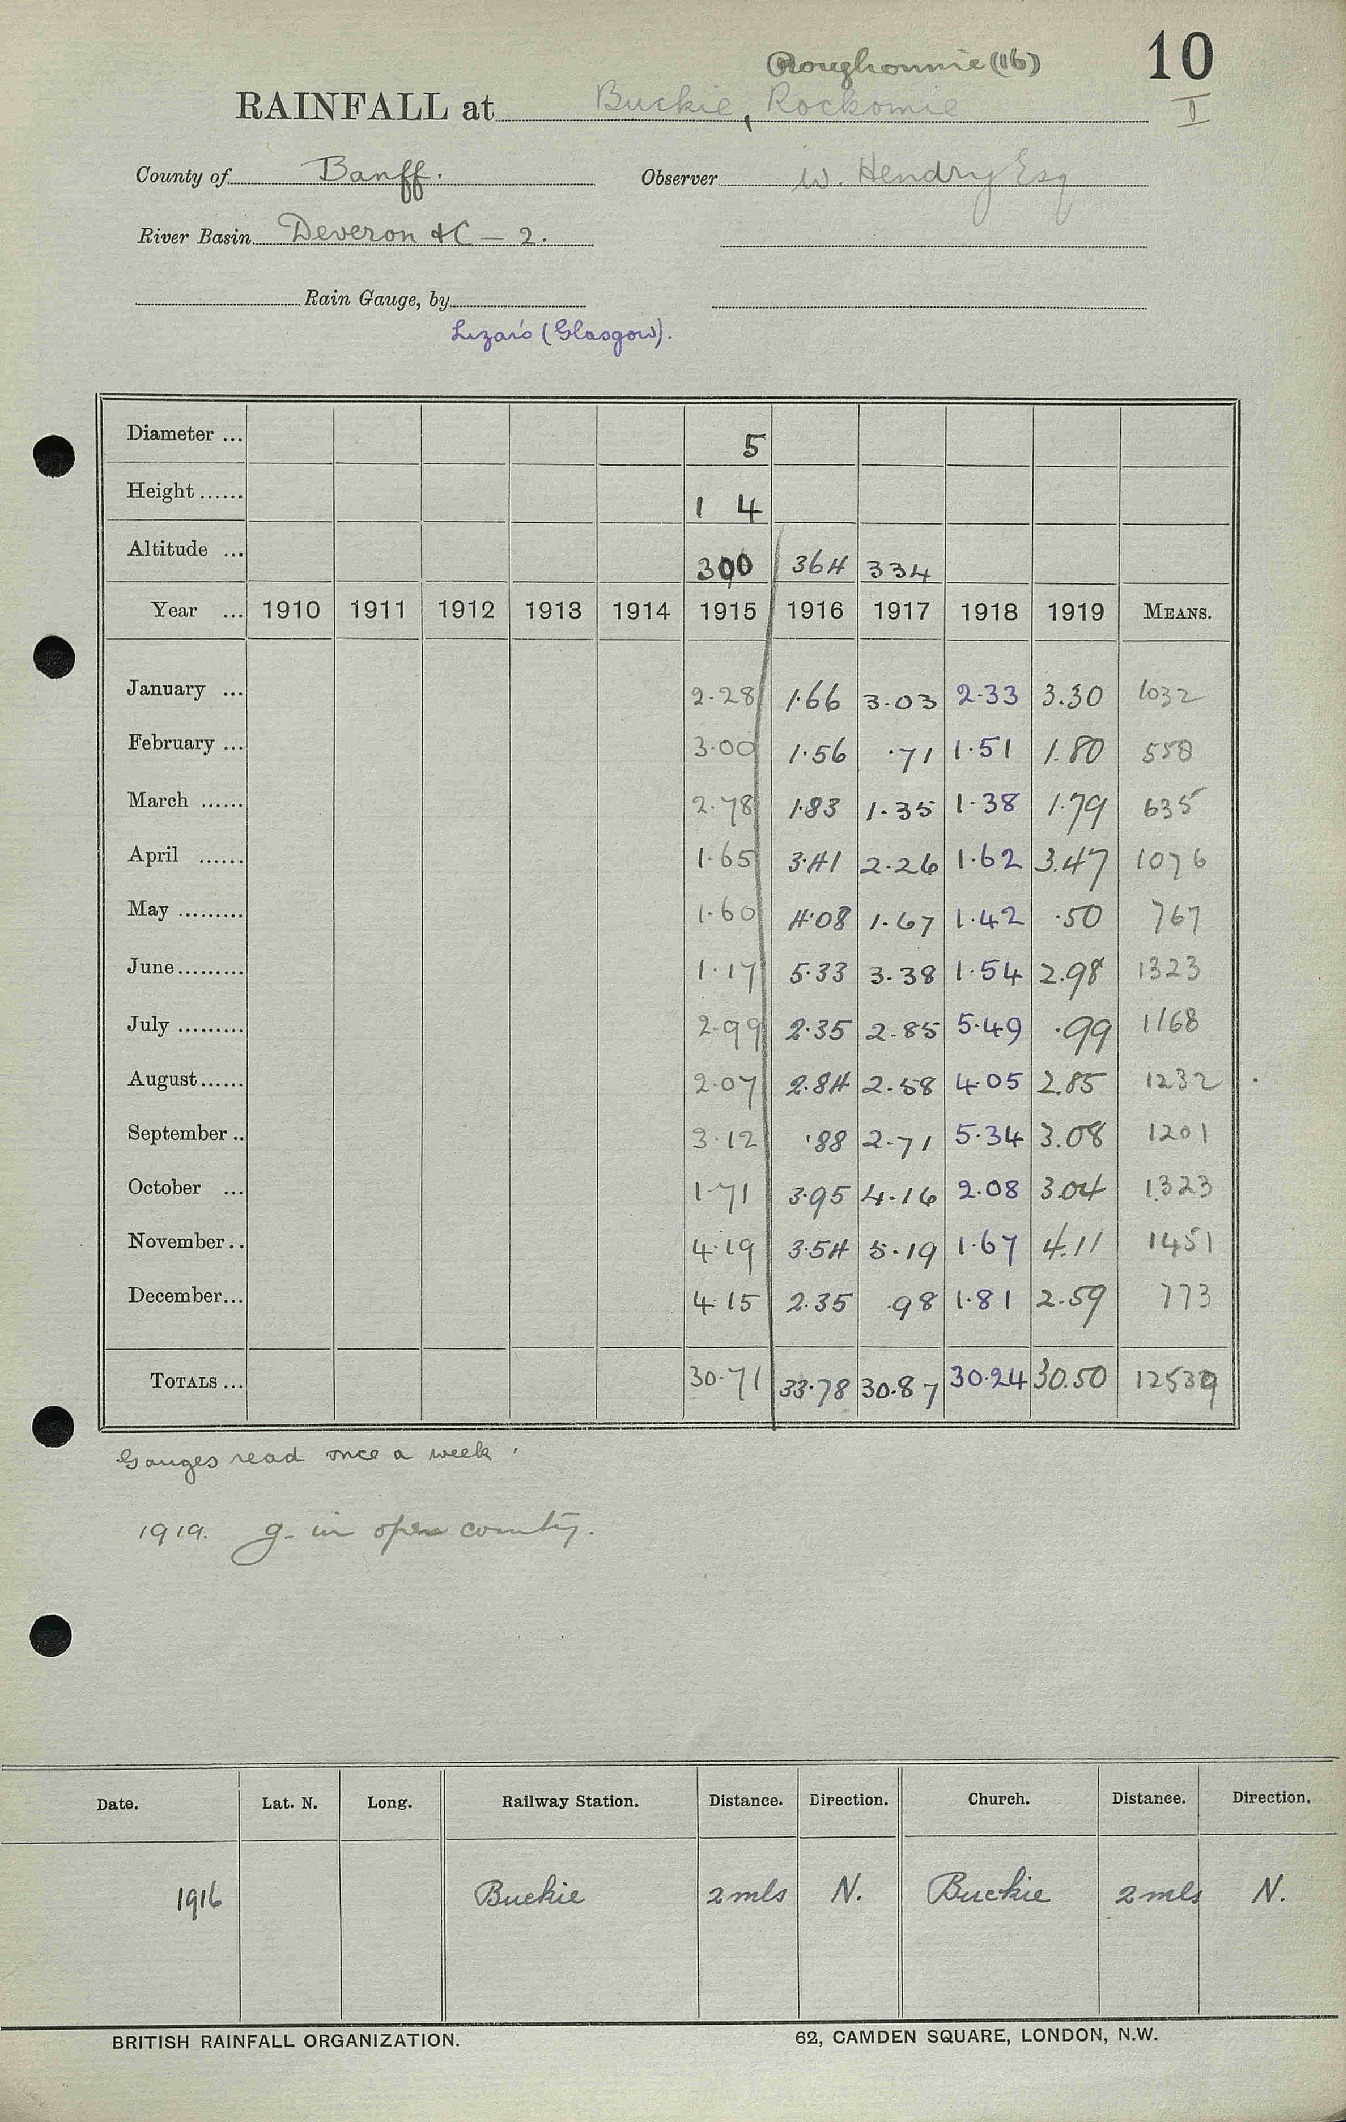 10
Roughonnie (16)
RAINFALL at Buckie, Rockomie I
County of Banff. Observer W. Hendry Esq
River Basin Deveron &C — 2.
Rain Gauge, by
Lizars (Glasgow).
Diameter ... 5
Height ...... 1 4
Altitude ... 300 364 334
Year ... 1910 1911 1912 1913 1914 1915 1916 1917 1918 1919 MEANS.
January ... 2.28 1.66 3.03 2.33 3.30 1032
February ... 3.00 1.56 .71 1.51 1.80 558
March ...... 2.78 1.83 1.35 1.38 1.79 635
April ...... 1.65 3.41 2.26 1.62 3.47 1076
May ......... 1.60 4.08 1.67 1.42 .50 767
June ......... 1.17 5.33 3.38 1.54 2.98 1323
July ......... 2.99 2.35 2.85 5.49 .99 1168
August ...... 2.07 2.84 2.58 4.05 2.85 1232
September .. 3.12 .88 2.71 5.34 3.08 1201
October ... 1.71 3.95 4.16 2.08 3.04 1323
November .. 4.19 3.54 5.19 1.67 4.11 1451
December ... 4.15 2.35 .98 1.81 2.59 773
TOTALS ... 30.71 33.78 30.87 30.24 30.50 12539
Gauges read once a week.
1919. g. in open county.
Date. Lat. N. Long. Railway Station. Distance. Direction. Church. Distance. Direction.
1916 Buckie 2 mls N. Buckie 2 mls N.
BRITISH RAINFALL ORGANIZATION. 62, CAMDEN SQUARE, LONDON, N.W.